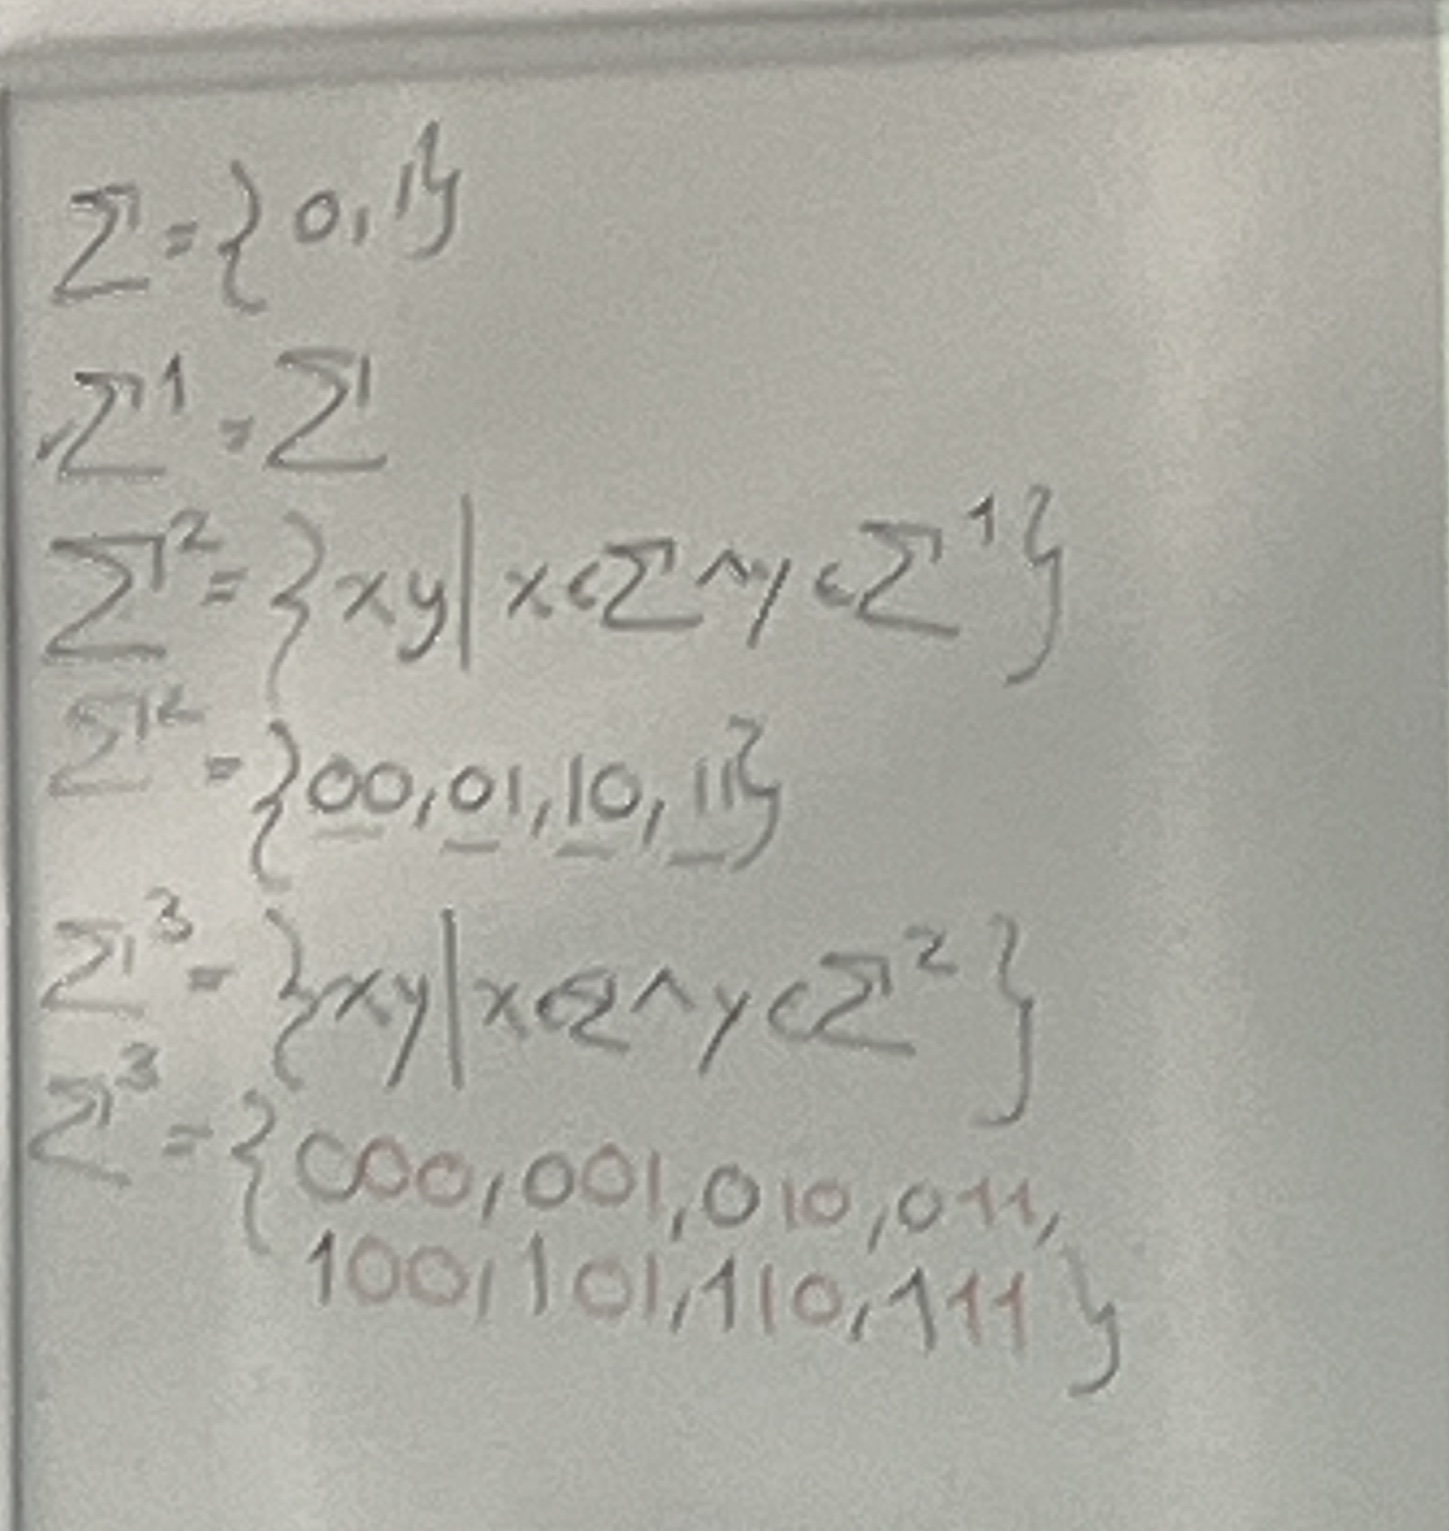 Σ={0,1}
Σ¹=Σ
Σ²={xy|x∈Σ∧y∈Σ¹}
Σ²={00,01,10,11}
Σ³={xy|x∈Σ∧y∈Σ²}
Σ³={000,001,010,011,
100,101,110,111}